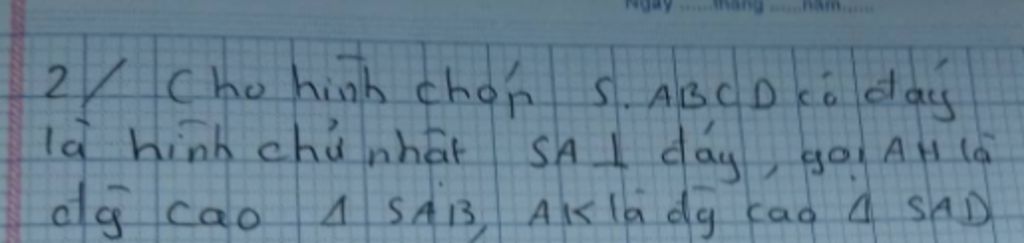 Ngày ......tháng ......năm......
2/ Cho hình chóp S.ABCD có đáy
là hình chữ nhật SA ⊥ đáy, gọi AH là
đg cao Δ SAB, AK là đg cao Δ SAD